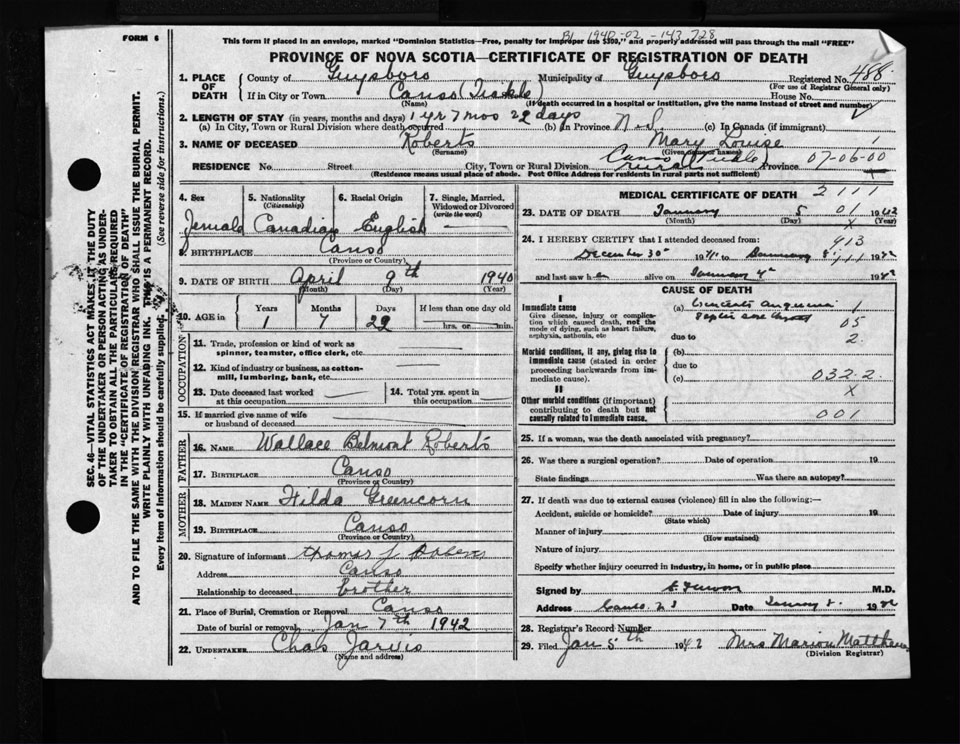 FORM 6
BI 1940-02-143728
This form if placed in an envelope, marked "Dominion Statistics—Free, penalty for improper use $300," and properly addressed will pass through the mail "FREE"
PROVINCE OF NOVA SCOTIA—CERTIFICATE OF REGISTRATION OF DEATH
SEC. 46—VITAL STATISTICS ACT MAKES IT THE DUTY
OF THE UNDERTAKER OR PERSON ACTING AS UNDER-
TAKER TO OBTAIN ALL THE PARTICULARS REQUIRED
IN THE "CERTIFICATE OF REGISTRATION OF DEATH"
AND TO FILE THE SAME WITH THE DIVISION REGISTRAR WHO SHALL ISSUE THE BURIAL PERMIT.
WRITE PLAINLY WITH UNFADING INK. THIS IS A PERMANENT RECORD.
Every item of information should be carefully supplied. (See reverse side for instructions.)
1. PLACE OF DEATH County of Guysboro Municipality of Guysboro Registered No. 488
(For use of Registrar General only)
If in City or Town Canso (Tickle) House No.
(Name) (If death occurred in a hospital or institution, give the name instead of street and number)
2. LENGTH OF STAY (in years, months and days) 1 yr 7 mos 29 days
(a) In City, Town or Rural Division where death occurred (b) in Province N.S (c) In Canada (if immigrant)
3. NAME OF DECEASED Roberts Mary Louise
(Surname) (Given names)
RESIDENCE No. Street City, Town or Rural Division Canso Tickle Rural Province 07-06-00
(Residence means usual place of abode. Post Office Address for residents in rural parts not sufficient)
4. Sex Female
5. Nationality (Citizenship) Canadian
6. Racial Origin English
7. Single, Married, Widowed or Divorced (write the word)
8. BIRTHPLACE Canso
(Province or Country)
9. DATE OF BIRTH April 9th 1940
(Month) (Day) (Year)
10. AGE in Years 1 Months 7 Days 29 If less than one day
hrs. or min.
OCCUPATION
11. Trade, profession or kind of work as spinner, teamster, office clerk, etc.
12. Kind of industry or business, as cotton-mill, lumbering, bank, etc.
13. Date deceased last worked at this occupation
14. Total yrs. spent in this occupation
15. If married give name of wife or husband of deceased
FATHER
16. NAME Wallace Belmont Roberts
17. BIRTHPLACE Canso
(Province or Country)
MOTHER
18. MAIDEN NAME Hilda Greencorn
19. BIRTHPLACE Canso
(Province or Country)
20. Signature of informant Thomas
Address Canso
Relationship to deceased brother
21. Place of Burial, Cremation or Removal Canso
Date of burial or removal Jan 7th 1942
22. UNDERTAKER Chas Jarvis
(Name and address)
MEDICAL CERTIFICATE OF DEATH
2 1 1 1
23. DATE OF DEATH January 5 01 1942
(Month) (Day) (Year)
24. I HEREBY CERTIFY that I attended deceased from: 913
December 30 1941 to January
and last saw h er alive on January 4 1942
CAUSE OF DEATH
I
Immediate cause
Give disease, injury or complication which caused death, not the mode of dying, such as heart failure, asphyxia, asthenia, etc
(a) 1
05
due to 2.
Morbid conditions, if any, giving rise to immediate cause (stated in order proceeding backwards from immediate cause).
(b)
due to
(c) 032-2
II
Other morbid conditions (if important) contributing to death but not causally related to immediate cause.
X
001
25. If a woman, was the death associated with pregnancy?
26. Was there a surgical operation? Date of operation 19
State findings Was there an autopsy?
27. If death was due to external causes (violence) fill in also the following:—
Accident, suicide or homicide? Date of injury 19
(State which)
Manner of injury
(How sustained)
Nature of injury
Specify whether injury occurred in industry, in home, or in public place
Signed by M.D.
Address Canso N S Date January 1942
28. Registrar's Record Number
29. Filed Jan 5th 1942 Mrs Marion Matthews
(Division Registrar)